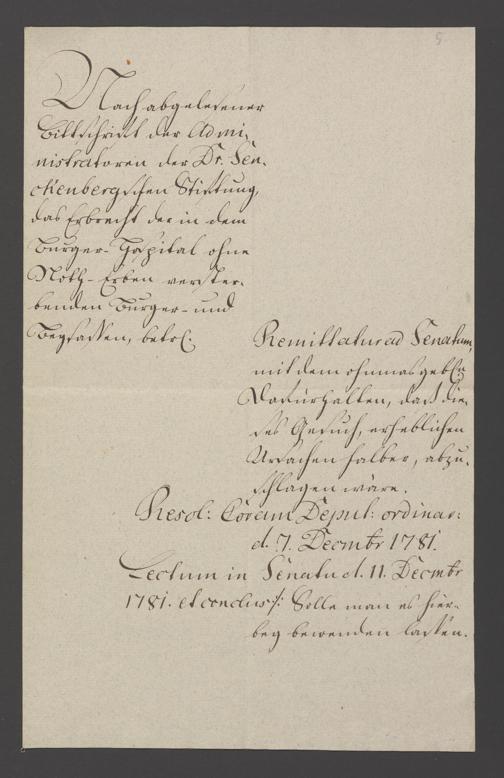 5.
Nach abgelesener
Bittschrifft der Admi-
nistratoren der Dr. Sen-
ckenbergischen Stiftung,
das Erbrecht der in dem
Burger-Hospital ohne
Noth-Erben verster-
benden Burger- und
Beysassen, betrl.
Remittatur ad Senatum,
mit dem ohnmasgebln
Dafürhalten, daß die-
ses Gesuch, erheblichen
Ursachen halber, abzu-
schlagen wäre.
Resol: Coram Deput: ordinar:
d. 7. Decembr 1781.
Lectum in Senatu d. 11. Decmbr
1781. et conclus /: Solle man es hier-
bey bewenden lassen.